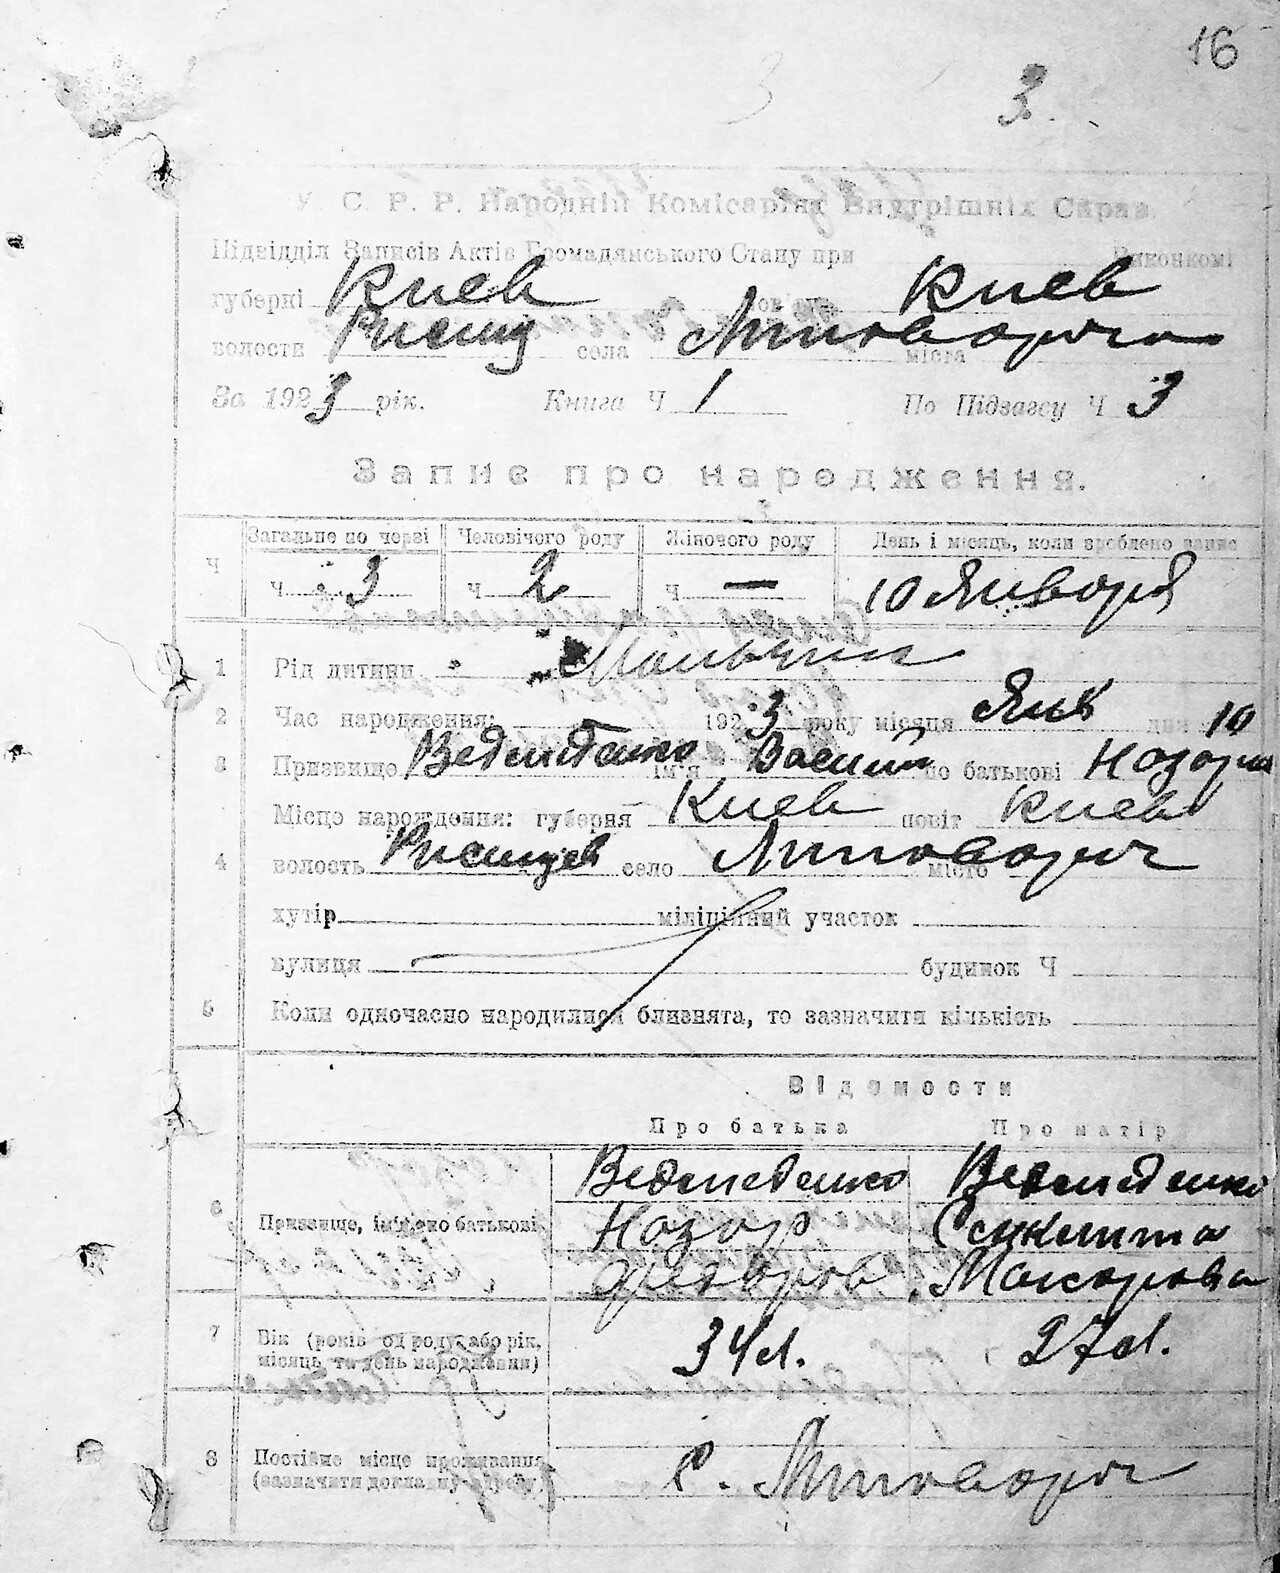 16
3.
У. С. Р. Р. Народній Комісаріят Внутрішніх Справ.
Підвідділ Записів Актів Громадянського Стану при Виконкомі
губерні Киев пов. Киев
волости Ржищ села міста
За 1923 рік. Книга Ч 1 По Підзагсу Ч 3
Запис про народження.
Загальне по черзі Человічого роду Жіночого роду День і місяць, коли зроблено запис
Ч Ч 3 Ч 2 Ч — 10 Января
1 Рід дитини Мальчик
2 Час народження: 1923 року місяця Янв дня 10
3 Призвище ім'я Василий по батькові Назаров
Місце народження: губерня Киев повіт Киев
4 волость село місто
хутір міліційний участок
вулиця будинок Ч
5 Коли одночасно народилися близнята, то зазначити кількість
Відомости
Про батька Про матір
6 Призвище, ім'я, по батькові
Назар
Федоров Макарова
7 Вік (років од роду, або рік, місяць та день народження) 34 л. 27 л.
8 Постійне місце проживання
(зазначити докладну адресу) с.